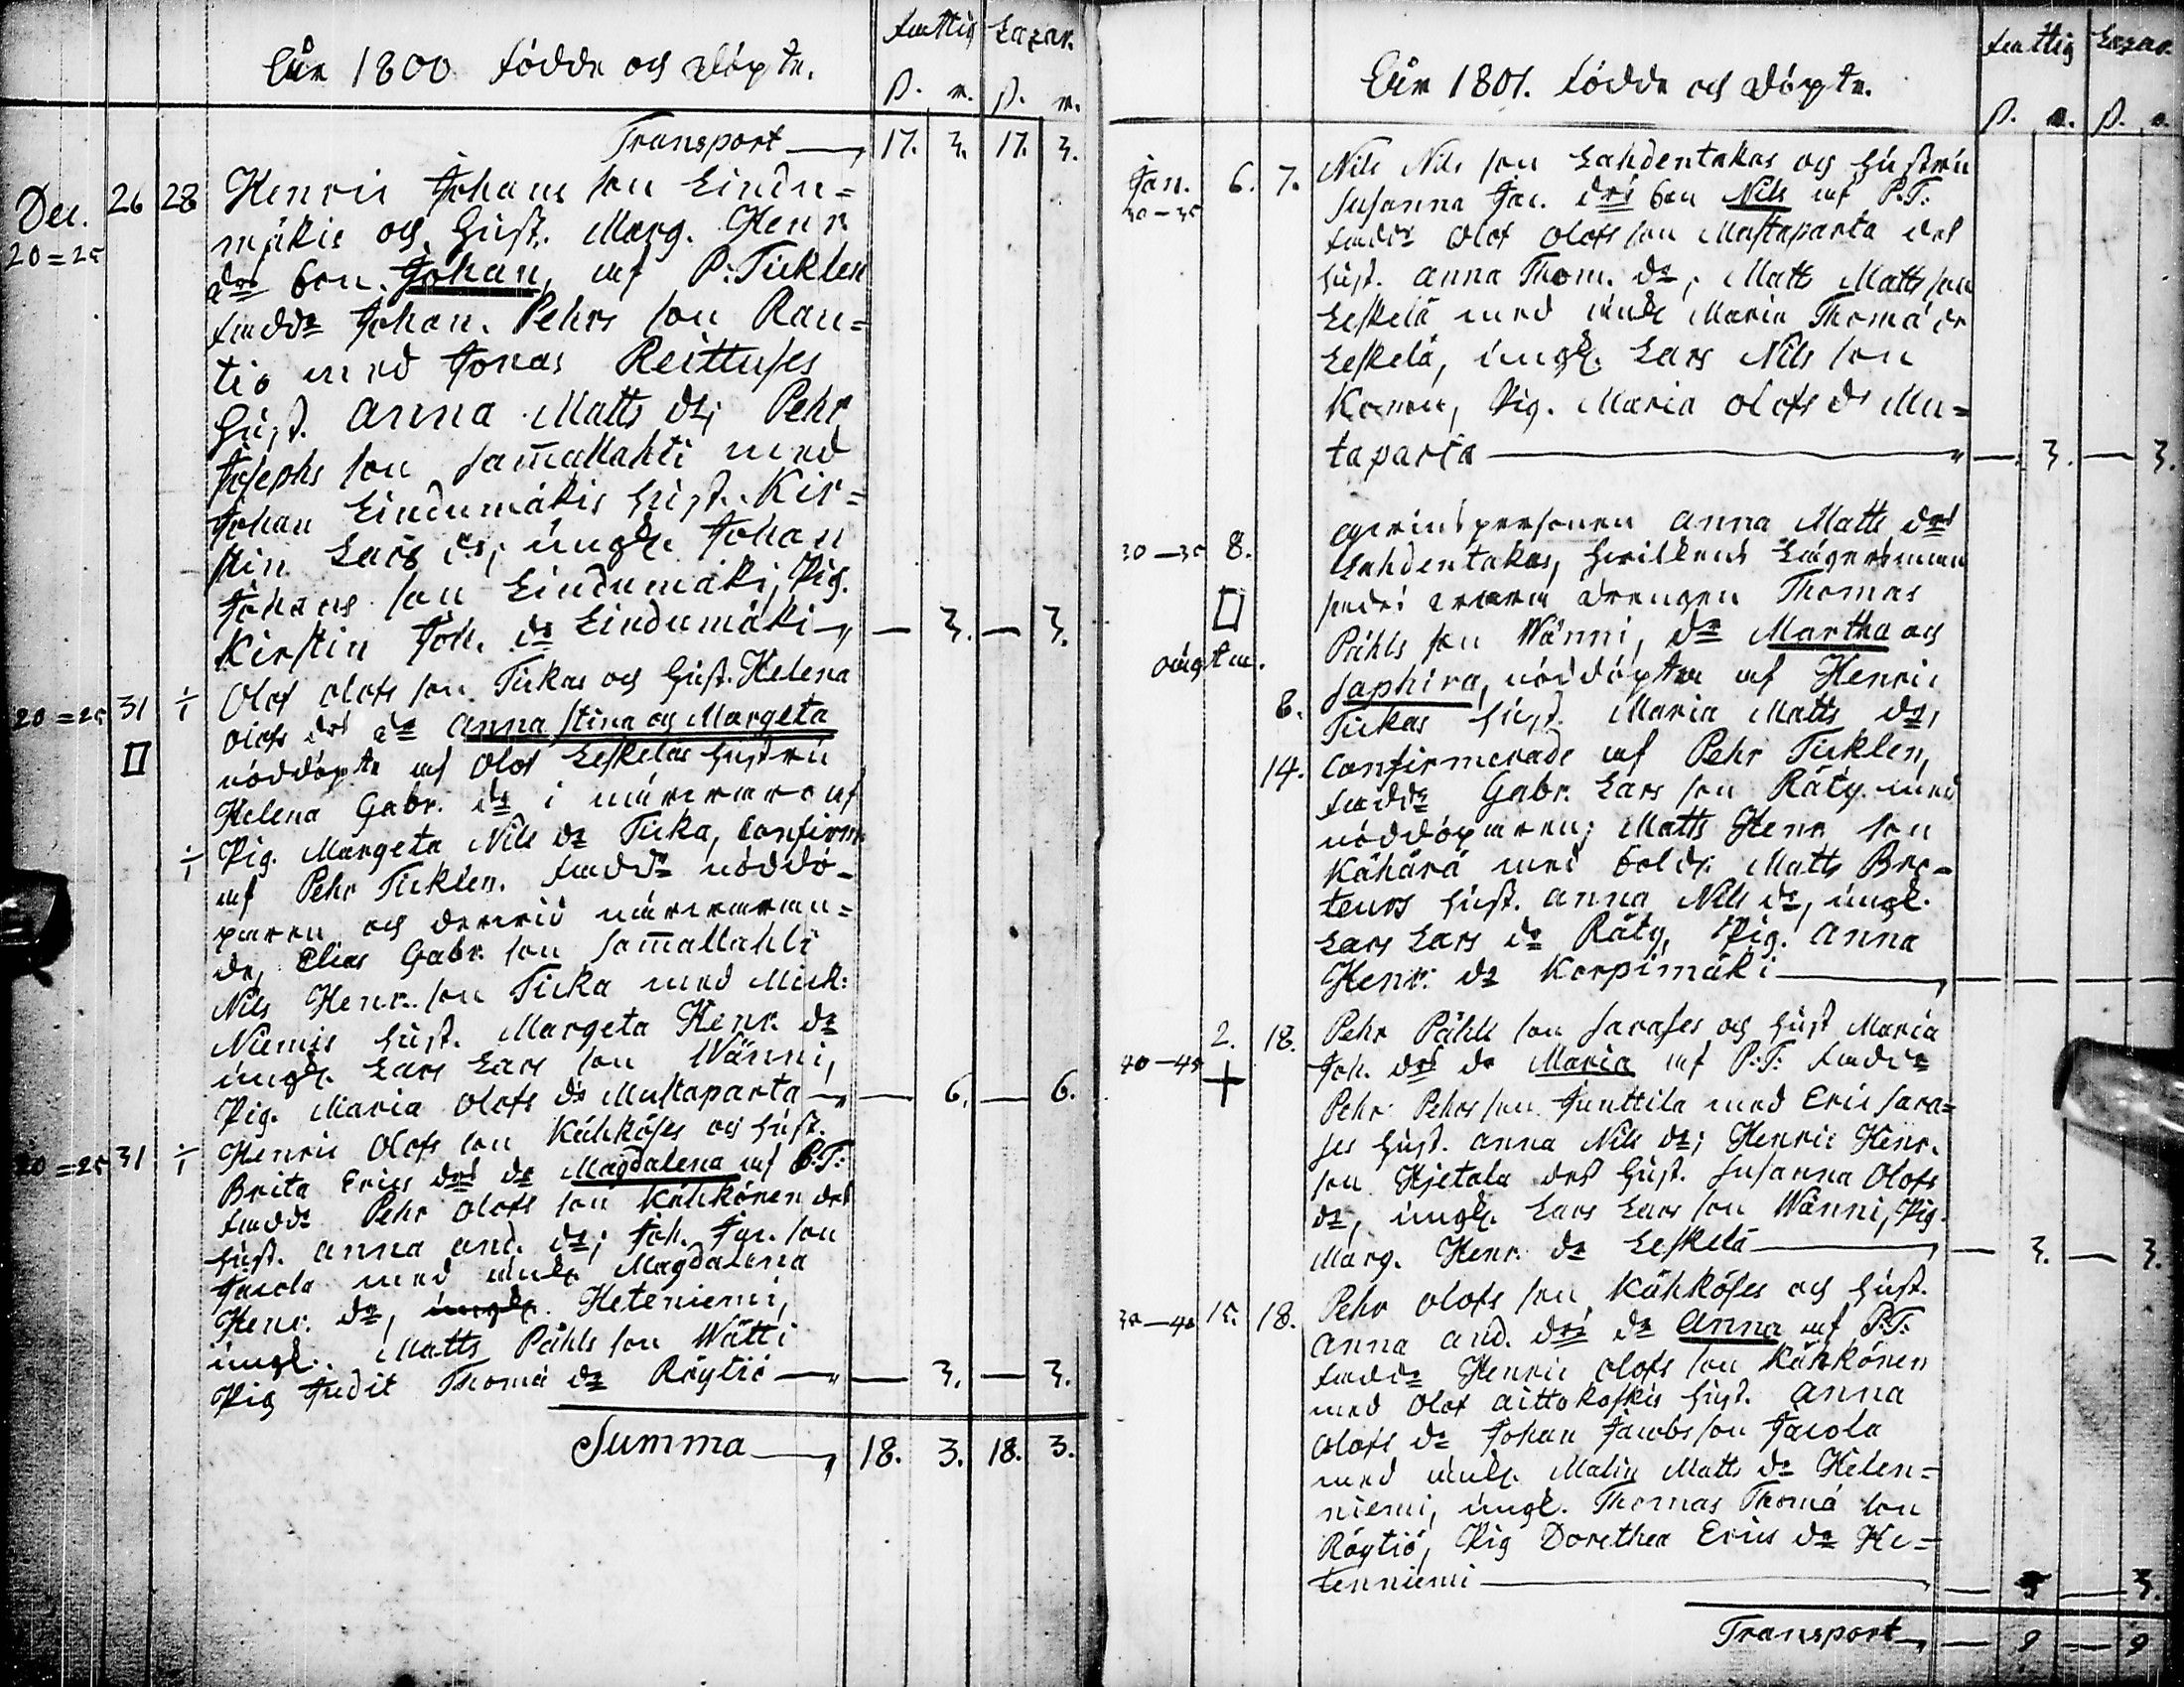 Fattig Lazar.
Åhr 1800 födde och döpte.
ß. r. ß. r.
Transport 17. 3. 17. 3.
Dec. 26 28 Henric Johans son Lindu=
20=25 mäkis och Hust. Marg. Henr.
drs barn Johan, af P. Ticklen
fadd: Johan Pehrs son Rau=
tio med Jonas Reittuses
Hust. Anna Matts dr; Pehr
Josephs son Sam̄allahti med
Johan Lindumäkis Hust. Kir=
stin Lars dr; ungk. Johan
Johans son Lindumäki, Pig.
Kirstin Joh. dr Lindumäki — 3. — 3.
20=25 31 1/1 Olof Olofs son Tickas och Hust. Helena
Olofs drs dr Anna Stina och Margeta
nöddöpte af Olof Leskeläs hustru
Helena Gabr. dr i närvaro af
1/1 Pig. Margeta Nils dr Ticka, Confirm.
af Pehr Ticklen. Fadd: nöddö-
paren och dervid närvaran=
de, Elias Gabr. son Sam̄allahti
Nils Henr. son Ticka med Mick:
Niemis Hust. Margeta Henr. dr
ungk. Lars Lars son Wänni,
Pig. Maria Olofs dr Mustaparta — 6. — 6.
20=25 31 1/1 Henric Olofs son Kähköses och Hust.
Brita Erics drs dr Magdalena af P.T:
fadd: Pehr Olofs son Kähkönen des
Hust. Anna And. dr; Joh. Jac. son
Jacola med enk. Magdalena
Henr. dr, ungk. Heteniemi,
ungk. Matts Påhls son Wätti
Pig Judit Thomæ dr Röytiö — 3. — 3.
Summa 18. 3. 18. 3.
Fattig Lazar.
Åhr 1801. födde och döpte.
ß. r. ß. r.
Jan. 6. 7. Nils Nils son Lahdentakas och hustru
30-35 Susanna Jac. drs barn Nils af P.T:
fadd: Olof Olofs son Mustaparta des
Hust. Anna Thom. dr; Matts Matts son
Leskelä med enk. Maria Thomæ dr
Leskelä, ungk. Lars Nils son
Pig. Maria Olofs dr Mu=
taparta — 3. — 3.
qvinspersonen Anna Matts drs
30-35 8. Lahdentakas, hvilkens Lägersman
drengen Thomas
Påhls son Wänni, dr Martha och
oägta.
Saphira, nöddöpta af Henric
8. Tickas Hust. Maria Matts dr,
14. Confirmerade af Pehr Ticklen,
fadd: Gabr. Lars son Räty med
nöddöparen; Matts Henr. son
Kähärä med Sold: Matts Bro-
teurs Hust. Anna Nils dr, ungk.
Lars Lars dr Räty, Pig. Anna
Henr. dr Korpimäki
2. 18. Pehr Påhls son Sarases och Hust Maria
40-45 Joh. drs dr Maria af P.T: fadd:
Pehr Pehrs son Junttila med Eric Sara=
ses Hust. Anna Nils dr; Henric Henr.
son Hjetala des Hust. Susanna Olofs
dr, ungk. Lars Lars son Wänni, Pig.
Marg. Henr. dr Leskelä — 3. — 3.
15. 18. Pehr Olofs son Kähköses och Hust.
Anna And. drs dr Anna af P.T:
fadd: Henric Olofs son Kähkönen
med Olof Aittokoskis Hust. Anna
Olofs dr Johan Jacobs son Jacola
med enk. Malin Matts dr Heten=
niemi, ungk. Thomas Thomæ son
Röytiö, Pig Dorethea Erics dr He=
tenniemi — 3 — 3.
Transport — 9 — 9